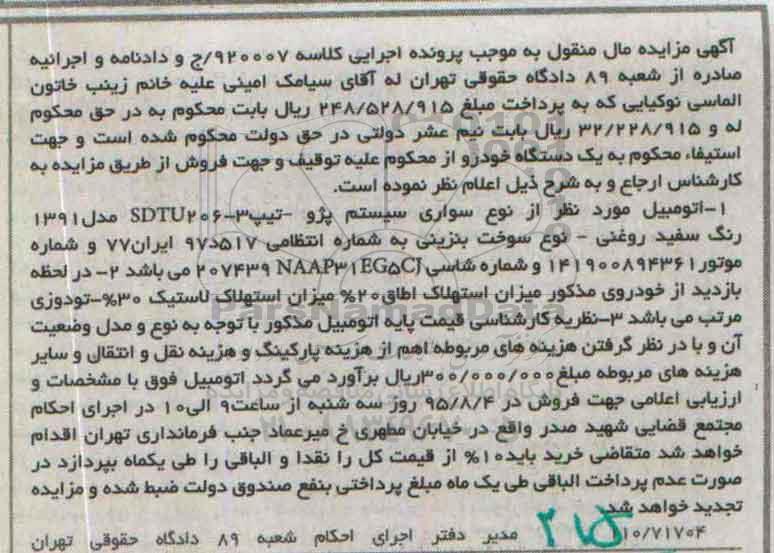 آگهی مزایده مال منقول به موجب پرونده اجرایی کلاسه ۹۲۰۰۰۷/ج و دادنامه و اجرائیه
صادره از شعبه ۸۹ دادگاه حقوقی تهران له آقای سیامک امینی علیه خانم زینب خاتون
الماسی نوکیایی که به پرداخت مبلغ ۲۴۸/۵۲۸/۹۱۵ ریال بابت محکوم به در حق محکوم
له و ۳۲/۲۲۸/۹۱۵ ریال بابت نیم عشر دولتی در حق دولت محکوم شده است و جهت
استیفاء محکوم به یک دستگاه خودرو از محکوم علیه توقیف و جهت فروش از طریق مزایده به
کارشناس ارجاع و به شرح ذیل اعلام نظر نموده است.
۱-اتومبیل مورد نظر از نوع سواری سیستم پژو -تیپ۳-SDTU۲۰۶ مدل۱۳۹۱
رنگ سفید روغنی - نوع سوخت بنزینی به شماره انتظامی ۵۱۷د۹۷ ایران۷۷ و شماره
موتور۱۴۱۹۰۰۸۹۴۳۶۱ و شماره شاسی NAAP۳۱EG۵CJ ۲۰۷۴۳۹ می باشد ۲- در لحظه
بازدید از خودروی مذکور میزان استهلاک اطاق۲۰% میزان استهلاک لاستیک ۳۰%-تودوزی
مرتب می باشد ۳-نظریه کارشناسی قیمت پایه اتومبیل مذکور با توجه به نوع و مدل وضعیت
آن و با در نظر گرفتن هزینه های مربوطه اهم از هزینه پارکینگ و هزینه نقل و انتقال و سایر
هزینه های مربوطه مبلغ۳۰۰/۰۰۰/۰۰۰ریال برآورد می گردد اتومبیل فوق با مشخصات و
ارزیابی اعلامی جهت فروش در ۹۵/۸/۴ روز سه شنبه از ساعت۹ الی۱۰ در اجرای احکام
مجتمع قضایی شهید صدر واقع در خیابان مطهری خ میرعماد جنب فرمانداری تهران اقدام
خواهد شد متقاضی خرید باید۱۰% از قیمت کل را نقدا و الباقی را طی یکماه بپردازد در
صورت عدم پرداخت الباقی طی یک ماه مبلغ پرداختی بنفع صندوق دولت ضبط شده و مزایده
تجدید خواهد شد.
۱۰/۷۱۷۰۴ مدیر دفتر اجرای احکام شعبه ۸۹ دادگاه حقوقی تهران
ParsNamadData